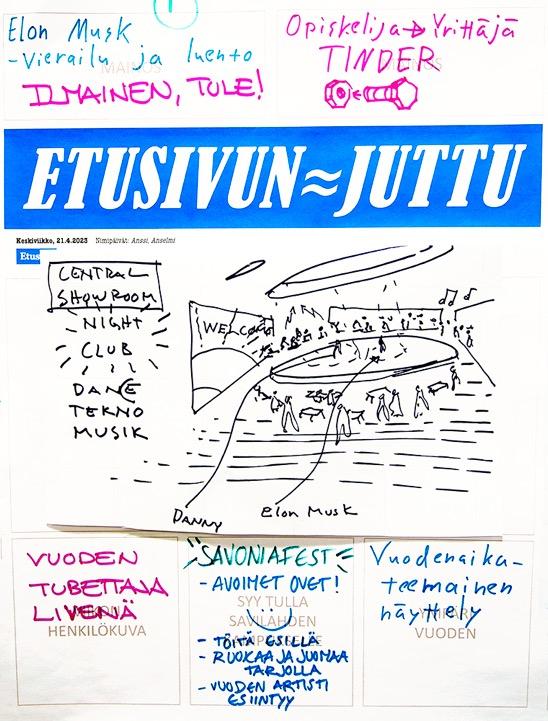 1
Elon Musk
- Vierailu ja luento
MAINOS
ILMAINEN, TULE!
Opiskelija → Yrittäjä
TINDER
ETUSIVUN≈JUTTU
Keskiviikko, 21.4.2023 Nimipäivät: Anssi, Anselmi
Etus
CENTRAL
SHOWROOM
NIGHT
CLUB
DANCE
TEKNO
MUSIK
WELCOME
Danny
Elon Musk
VUODEN
TUBETTAJA
LIVENÄ
HENKILÖKUVA
SAVONIAFEST
- AVOIMET OVET!
SYY TULLA
SAVILAHDEN
- TÖITÄ ESILLÄ
- RUOKAA JA JUOMAA
TARJOLLA
- VUODEN ARTISTI
ESIINTYY
Vuodenaika-
teemainen
näyttely
VUODEN